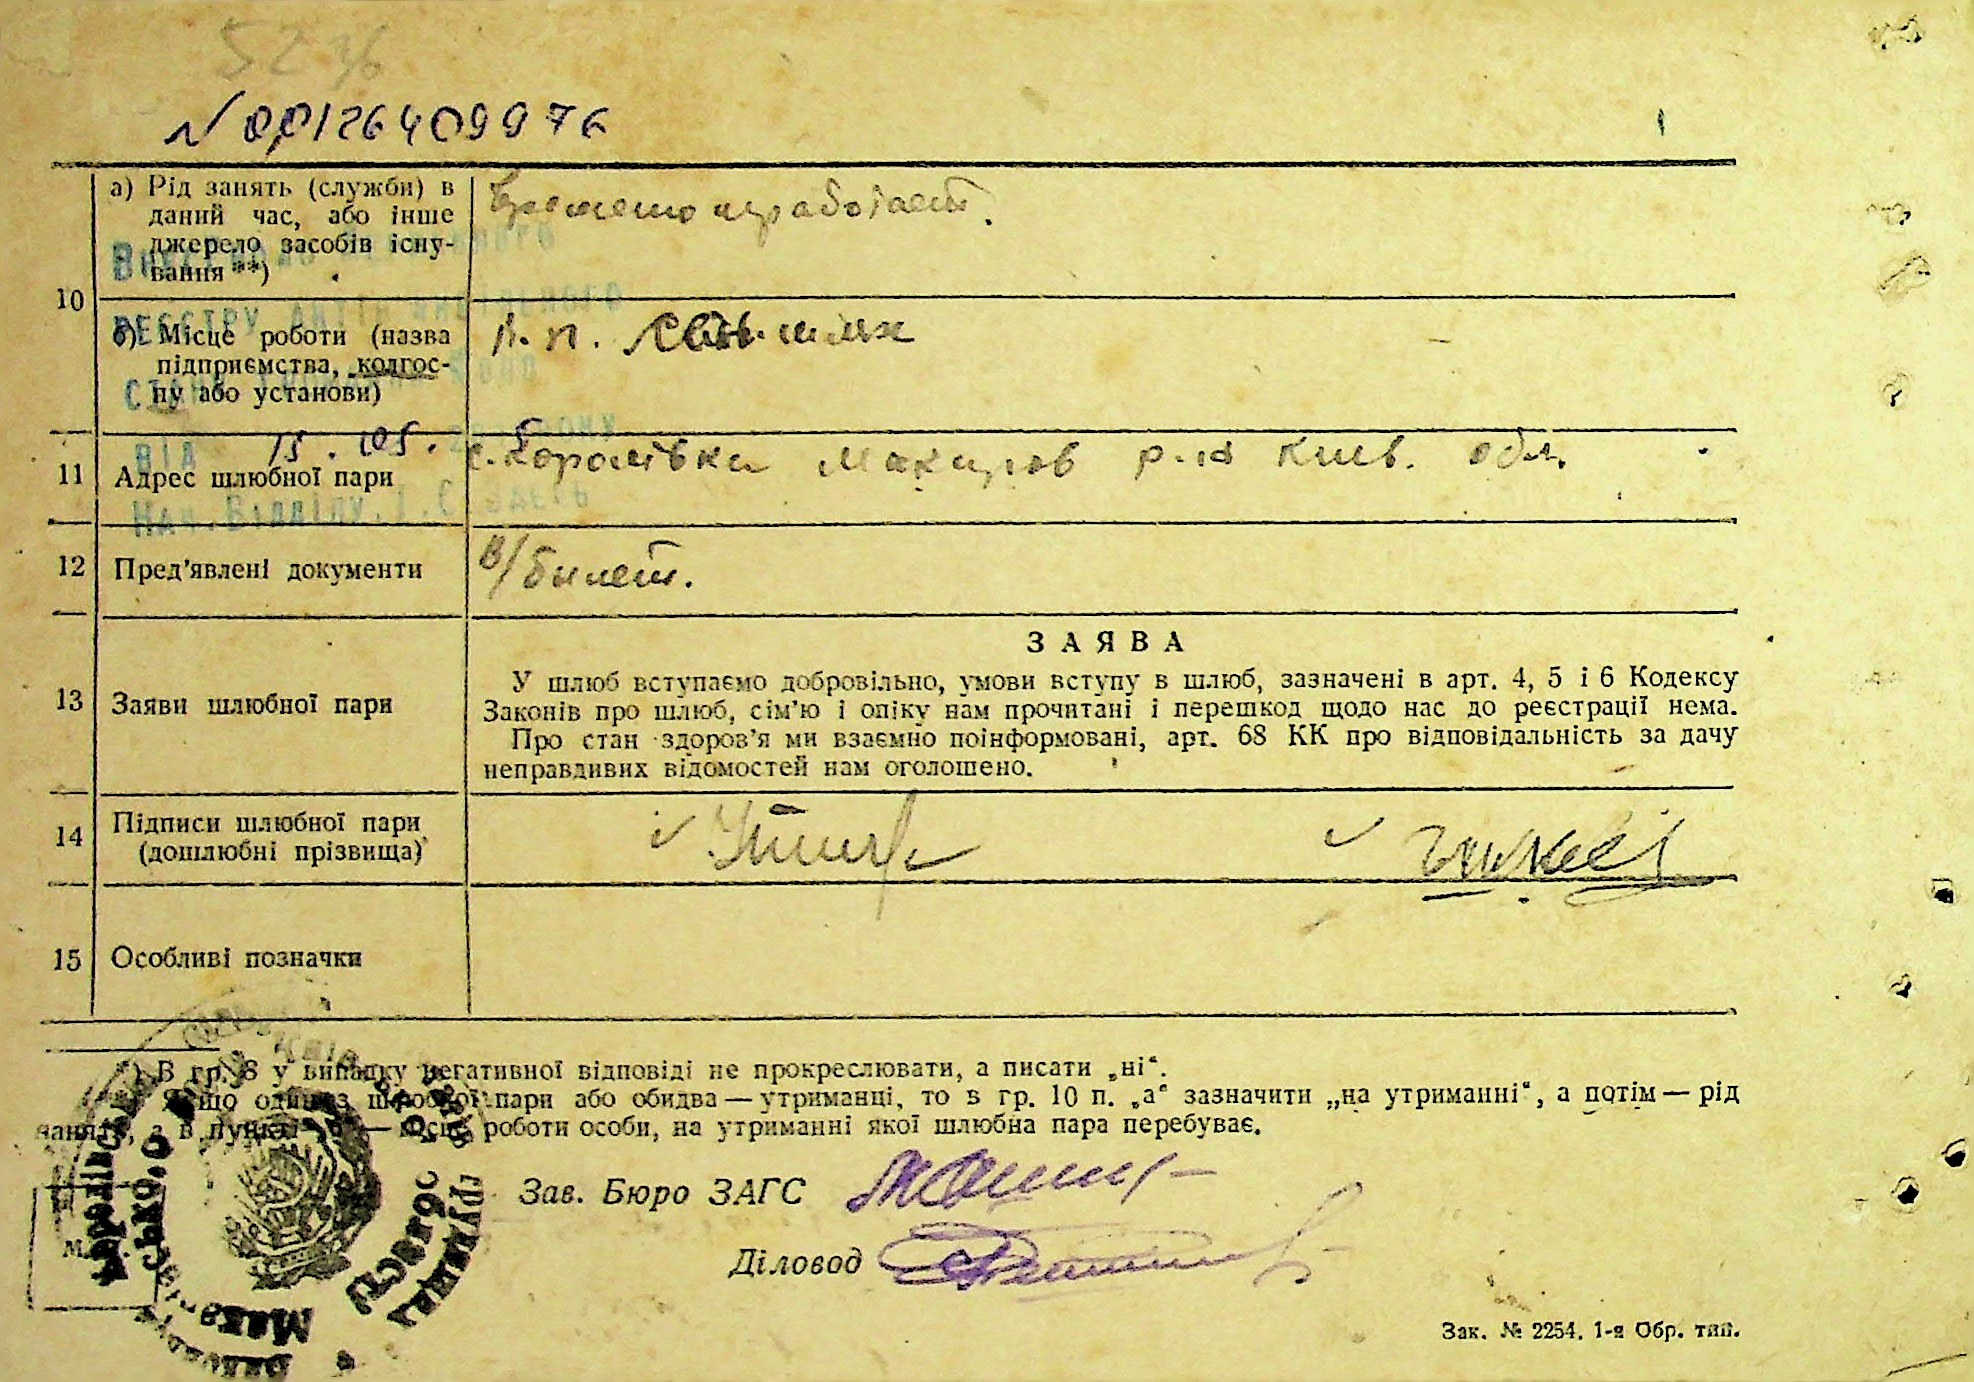 5236
N 00126409976
а) Рід занять (служби) в
даний час, або інше
джерело засобів існу-
вання **)
10
б) Місце роботи (назва
підприємства, колгос-
пу або установи)
РЕЄСТРУ
ВІД 15.05.
11 Адрес шлюбної пари
с. Королівка Макаров р-на Київ. обл.
Нач. Відділу.
12 Пред'явлені документи
В/билет.
ЗАЯВА
13 Заяви шлюбної пари
У шлюб вступаємо добровільно, умови вступу в шлюб, зазначені в арт. 4, 5 і 6 Кодексу
Законів про шлюб, сім'ю і опіку нам прочитані і перешкод щодо нас до реєстрації нема.
Про стан здоров'я ми взаємно поінформовані, арт. 68 КК про відповідальність за дачу
неправдивих відомостей нам оголошено.
14 Підписи шлюбної пари
(дошлюбні прізвища)
15 Особливі позначки
) В гр. 8 у випадку негативної відповіді не прокреслювати, а писати „ні“.
Якщо один з шлюбної пари або обидва — утриманці, то в гр. 10 п. „а“ зазначити „на утриманні“, а потім — рід
занять, а в пункті — місце роботи особи, на утриманні якої шлюбна пара перебуває.
Зав. Бюро ЗАГС
Діловод
М.
Зак. № 2254. 1-а Обр. тип.